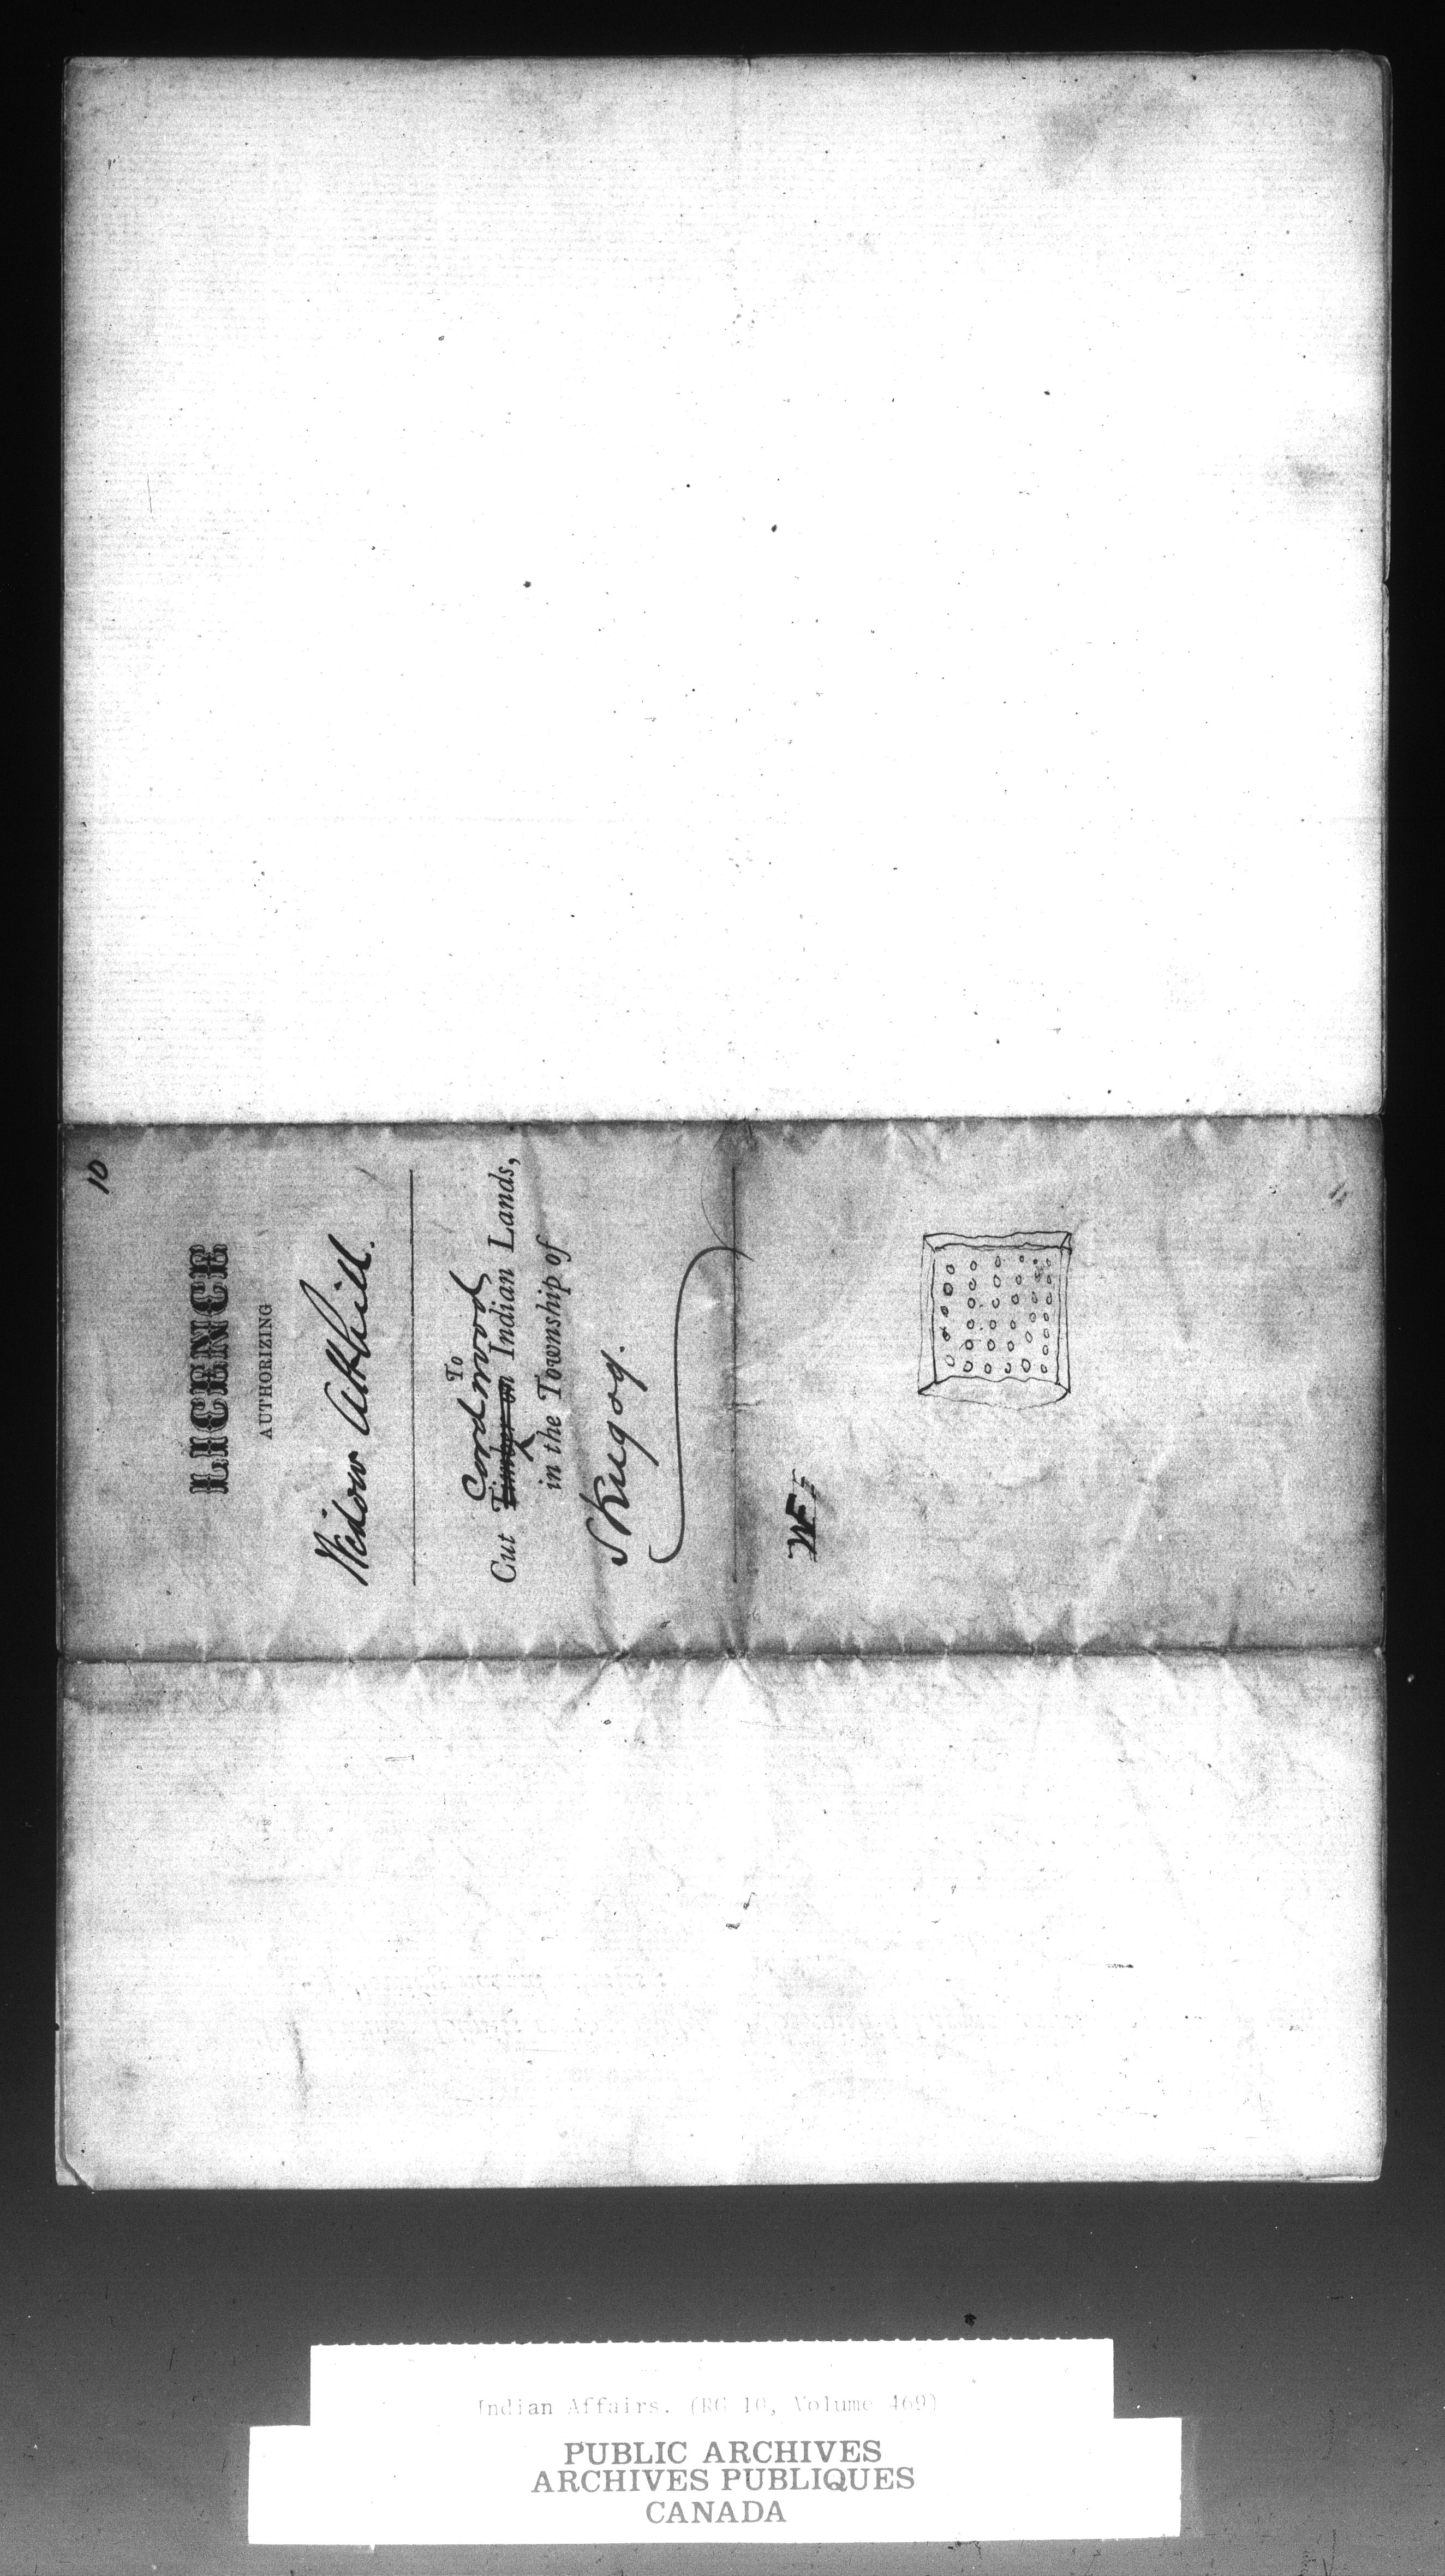 10
LICENCE
AUTHORIZING
Widow Atthill.
To
Cordwood
Cut Timber on Indian Lands,
in the Township of
Skugog.
Indian Affairs. (RG 10, Volume 469)
PUBLIC ARCHIVES
ARCHIVES PUBLIQUES
CANADA